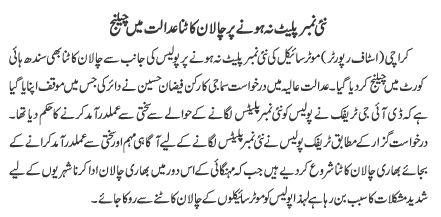 نئی نمبر پلیٹ نہ ہونے پر چالان کاٹنا عدالت میں چیلنج
کراچی (اسٹاف رپورٹر) موٹرسائیکل کی نئی نمبر پلیٹ نہ ہونے پر پولیس کی جانب سے چالان کاٹنا بھی سندھ ہائی
کورٹ میں چیلنج کردیا گیا۔ عدالت عالیہ میں درخواست سماجی کارکن فیضان حسین نے دائر کی جس میں موقف اپنایا گیا
ہے کہ ڈی آئی جی ٹریفک نے پولیس کو نئی نمبر پلیٹس لگانے کے حوالے سے سختی سے عملدرآمد کرنے کا حکم دیا تھا۔
درخواست گزار کے مطابق ٹریفک پولیس نے نئی نمبر پلیٹس لگانے کے لیے آگاہی مہم اور سختی سے عملدرآمد کرانے کے
بجائے بھاری چالان کاٹنا شروع کردیے ہیں جب کہ مہنگائی کے اس دور میں بھاری چالان ادا کرنا شہریوں کے لیے
شدید مشکلات کا سبب بن رہا ہے لہٰذا پولیس کو موٹرسائیکلوں کے چالان کاٹنے سے روکا جائے۔